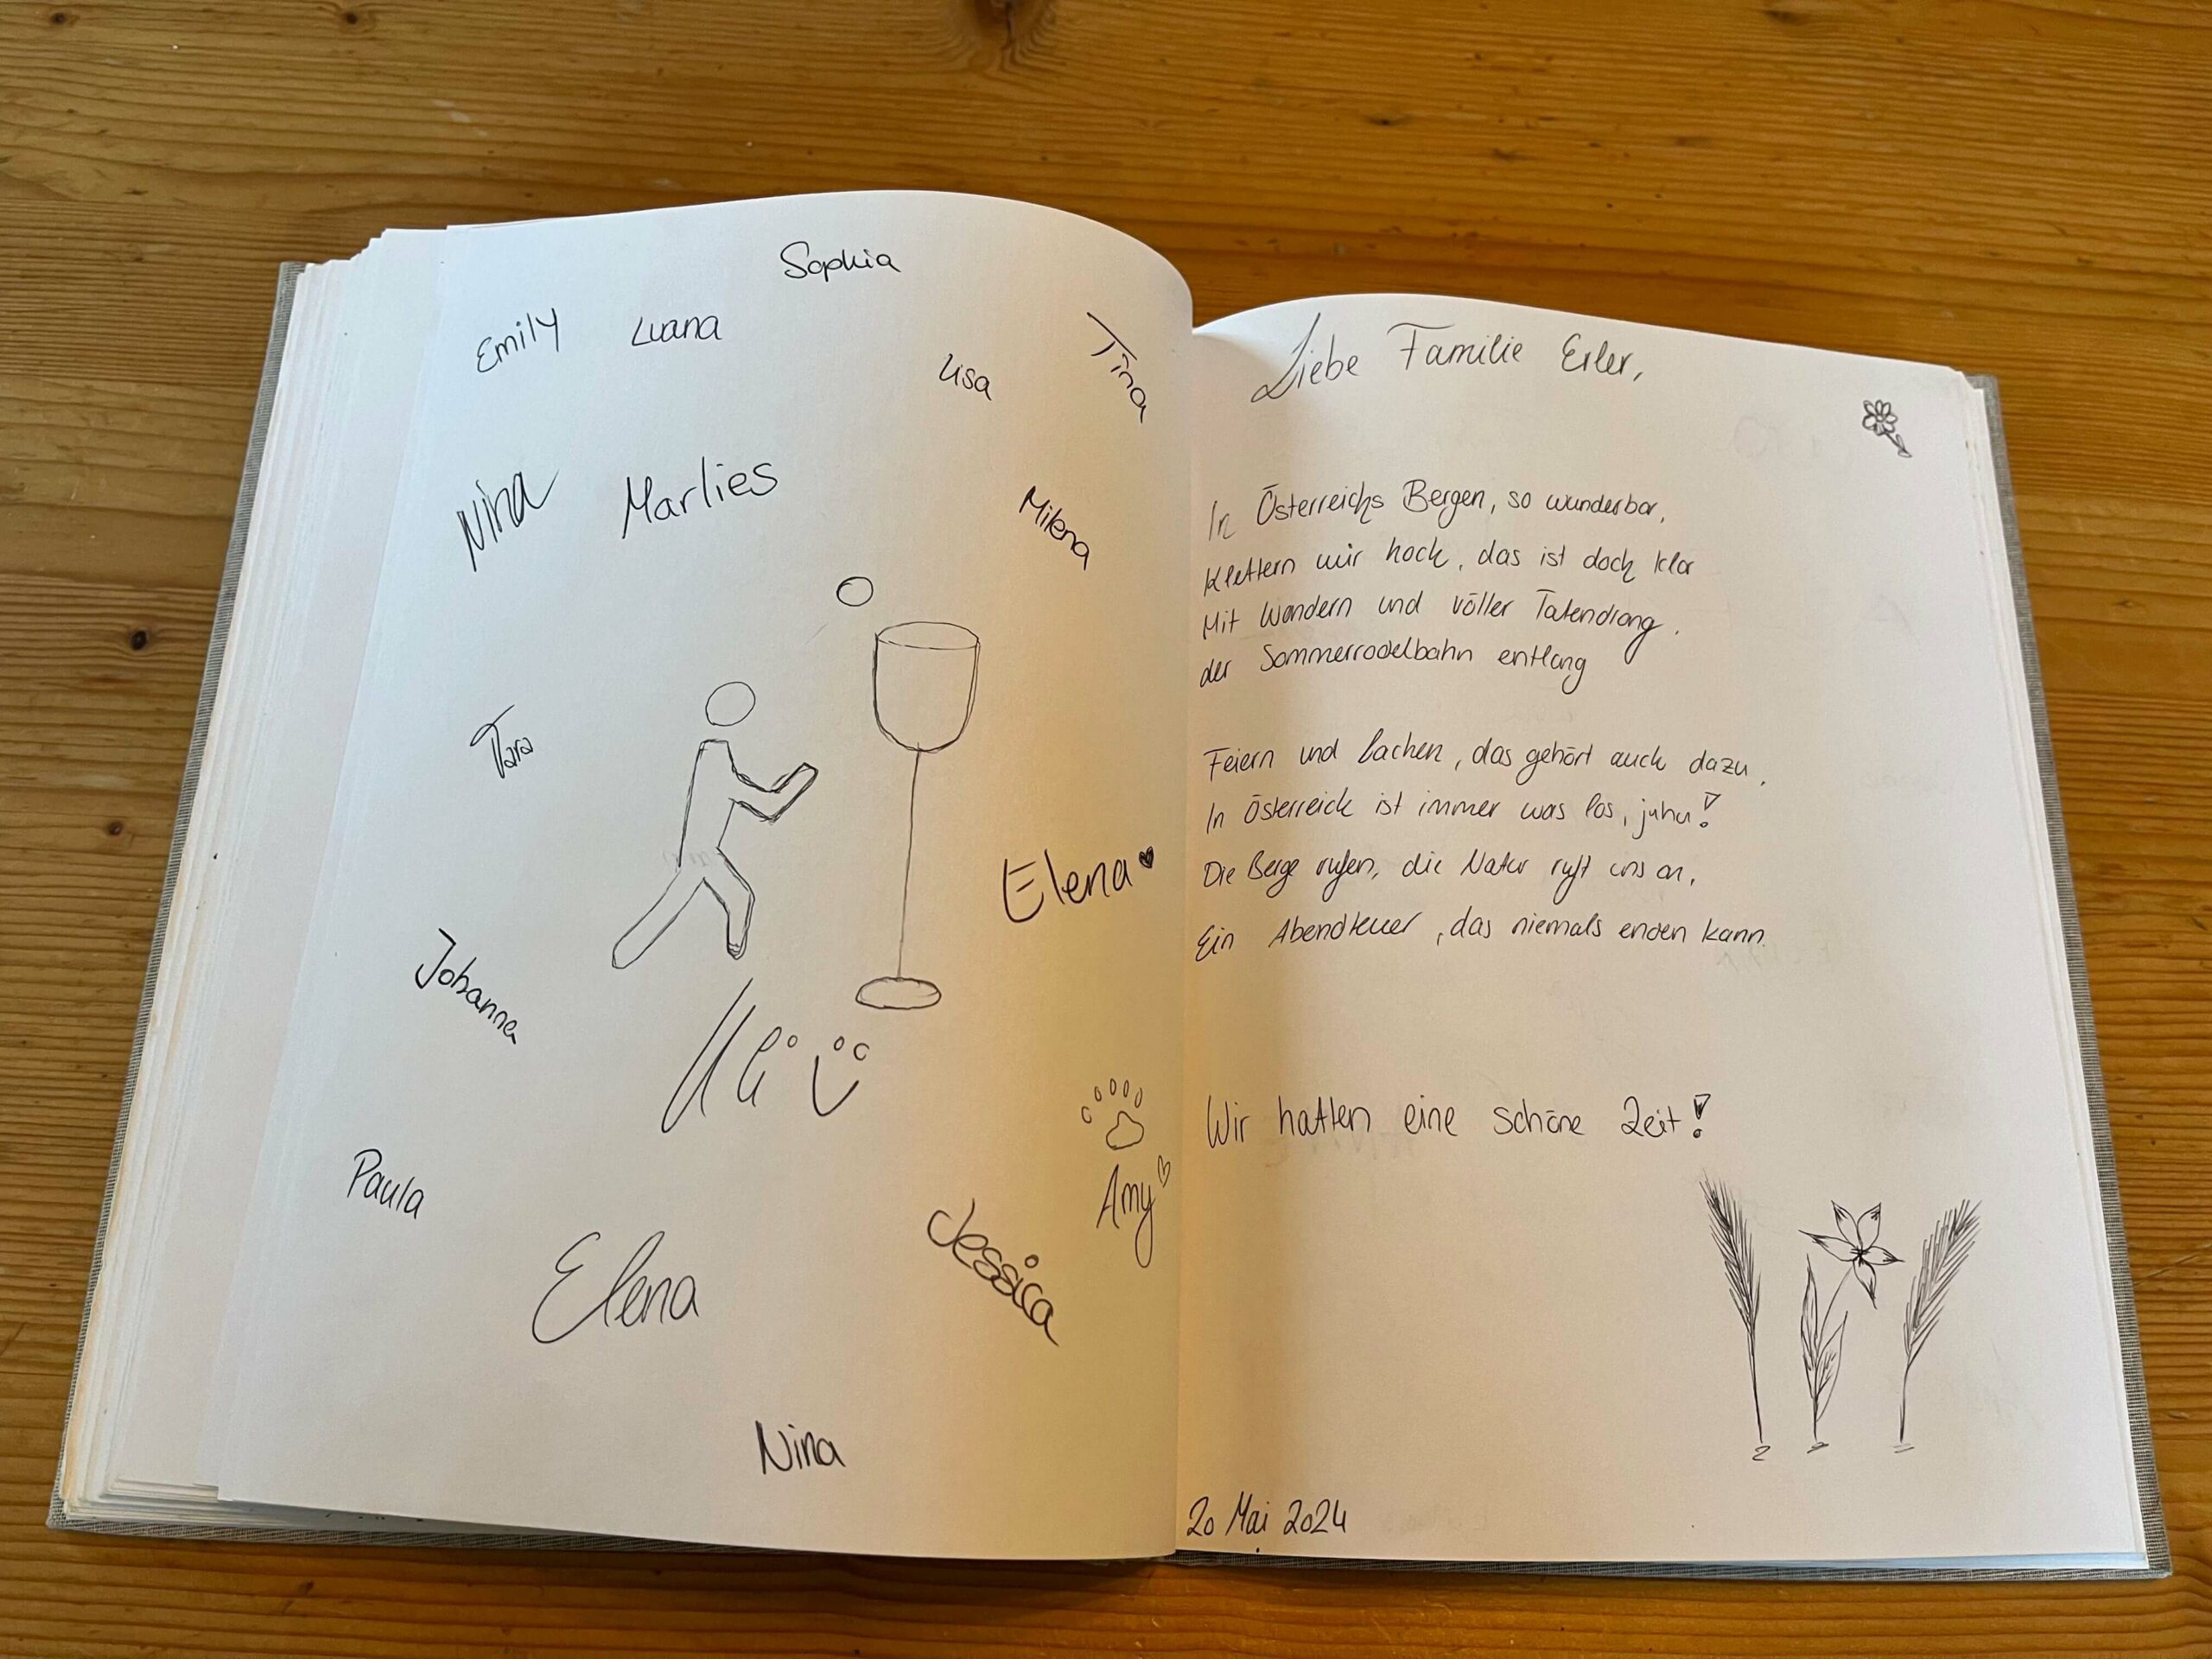 Sophia
Emily
Luana
Lisa
Tina
Nina
Marlies
Milena
Tara
Elena
Johanna
Uli
Paula
Amy
Jessica
Elena
Nina
Liebe Familie Erler,
In Österreichs Bergen, so wunderbar,
Klettern wir hoch, das ist doch klar
Mit Wandern und voller Tatendrang.
der Sommerrodelbahn entlang
Feiern und lachen, das gehört auch dazu,
In Österreich ist immer was los, juhu!
Die Berge rufen, die Natur ruft uns an,
Ein Abendteuer, das niemals enden kann.
Wir hatten eine schöne Zeit!
20 Mai 2024